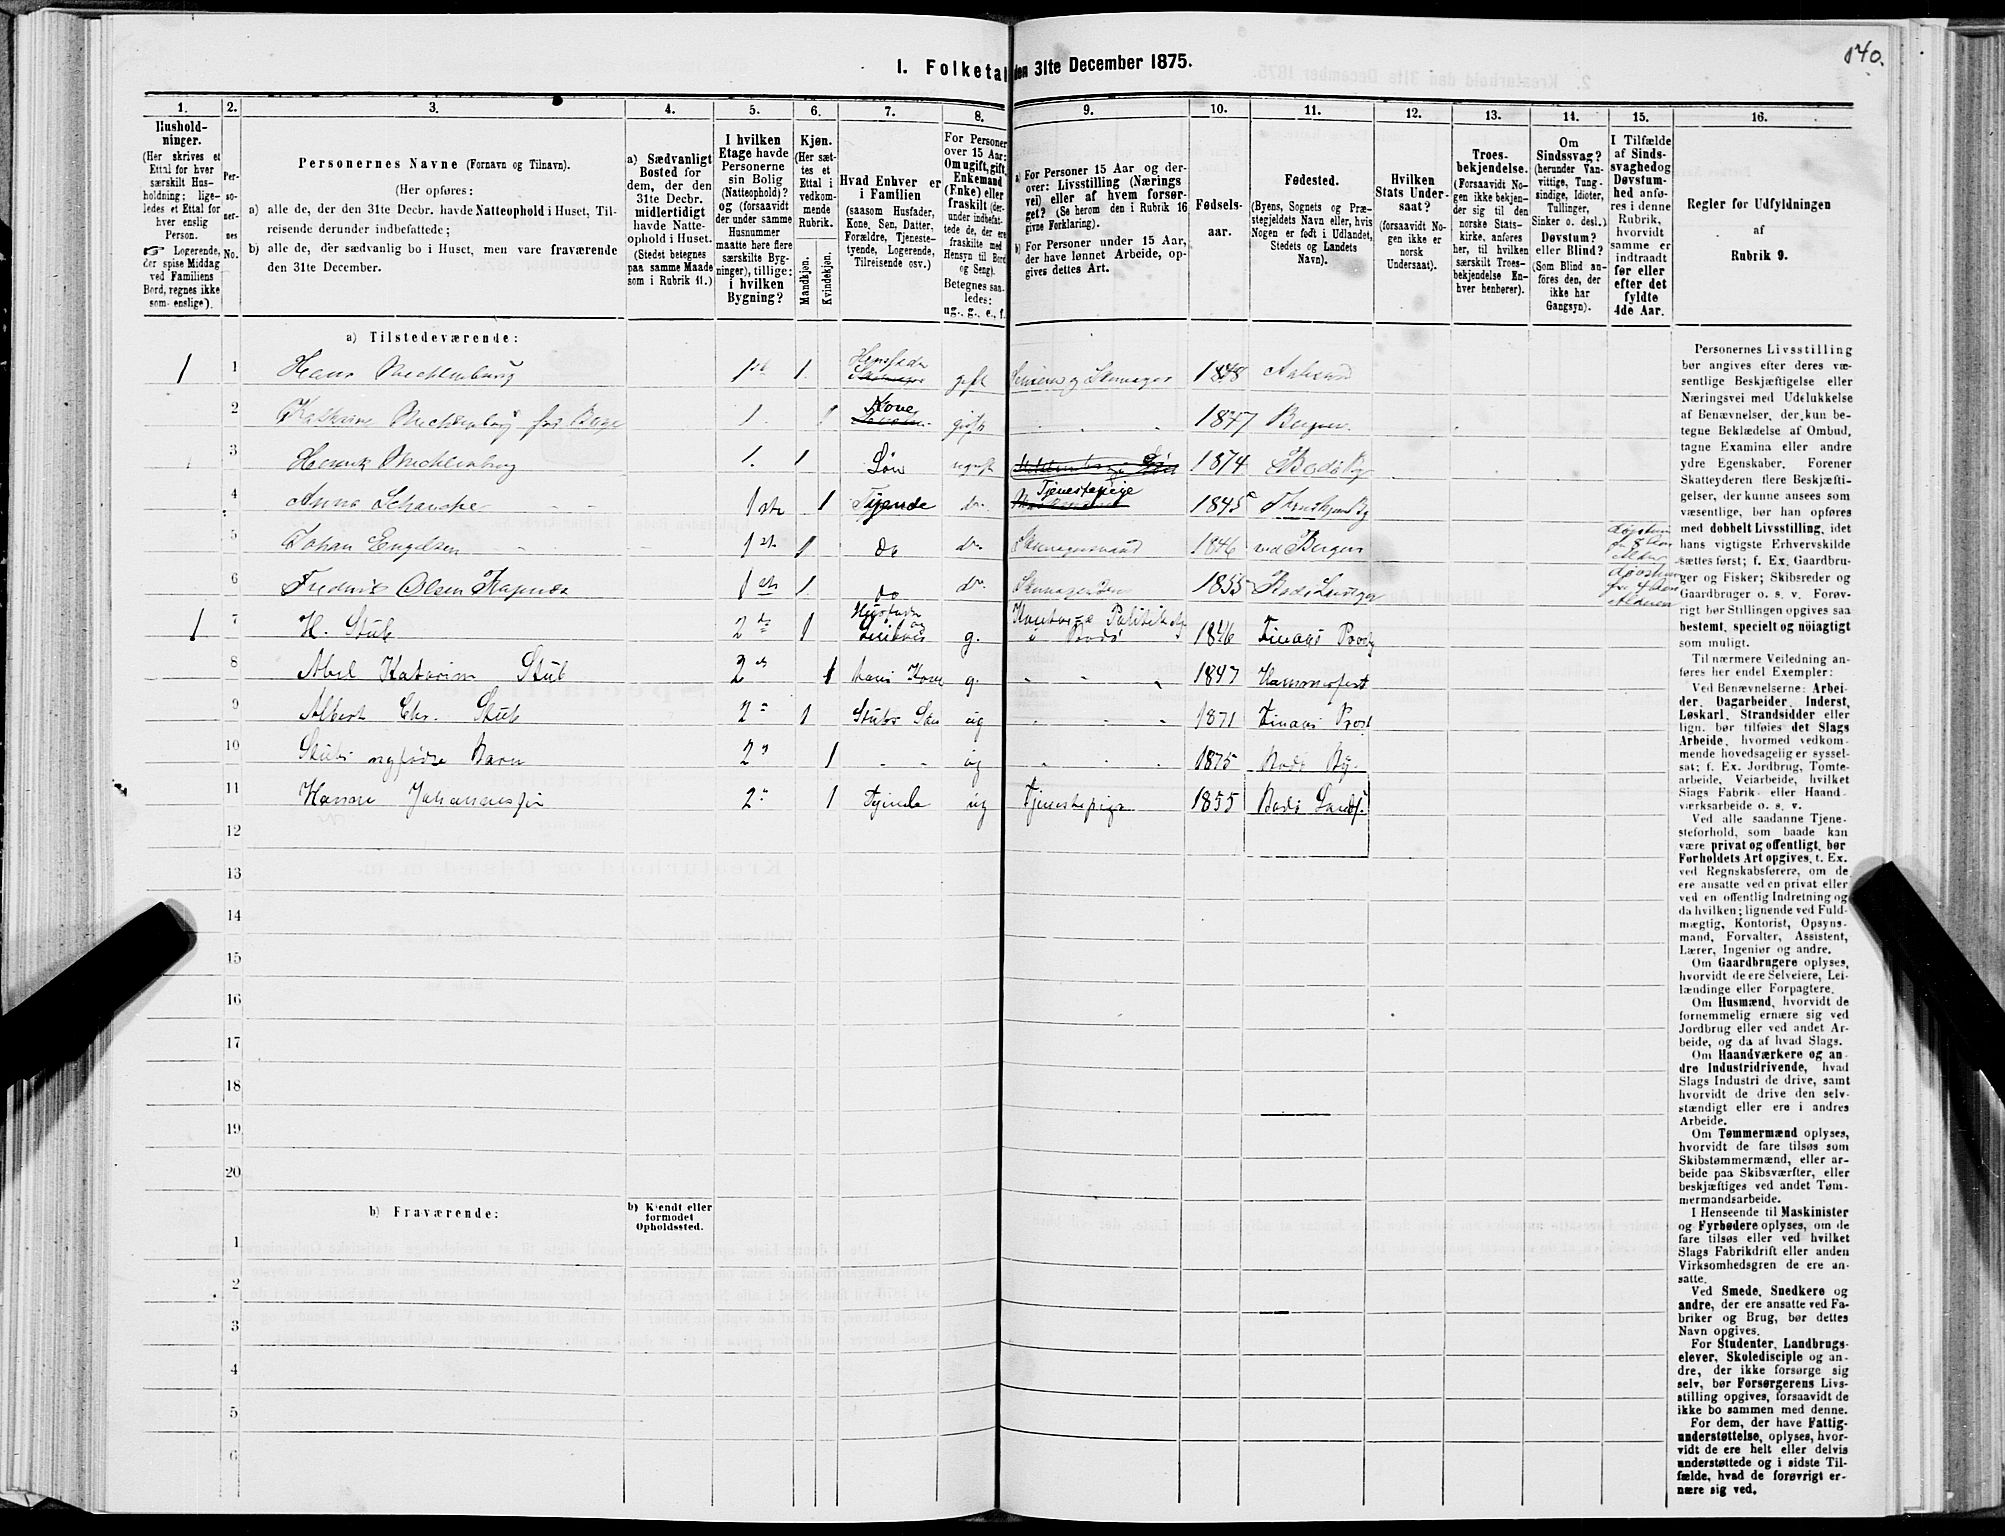 140.
I. Folketal den 31te December 1875.
1. 2. 3. 4. 5. 6. 7. 8. 9. 10. 11. 12. 13. 14. 15. 16.
Hushold-
ninger.
(Her skrives et
Ettal for hver
særskilt Hus-
holdning; lige-
ledes et Ettal for
hver enslig
Person.
☞ Logerende,
der spise Middag
ved Familiens
Bord, regnes ikke
som enslige).
Per-
so-
ner-
nes
No.
Personernes Navne (Fornavn og Tilnavn).
(Her opføres:
a) alle de, der den 31te Decbr. havde Natteophold i Huset, Til-
reisende derunder indbefattede;
b) alle de, der sædvanlig bo i Huset, men vare fraværende
den 31te December.
a) Sædvanligt
Bosted for
dem, der den
31te Decbr.
midlertidigt
havde Natte-
ophold i Huset.
(Stedet betegnes
paa samme Maade
som i Rubrik 11.)
I hvilken
Etage havde
Personerne
sin Bolig
(Natteophold)?
og (forsaavidt
der under samme
Husnummer
maatte høre flere
særskilte Byg-
ninger), tillige:
i hvilken
Bygning?
Kjøn.
(Her sæt-
tes et
Ettal i
vedkom-
mende
Rubrik.
Mandkjøn.
Kvindekjøn.
Hvad Enhver er
i Familien
(saasom Husfader,
Kone, Søn, Datter,
Forældre, Tjeneste-
tyende, Logerende,
Tilreisende osv.)
For Personer
over 15 Aar:
Om ugift, gift,
Enkemand
(Enke) eller
fraskilt (der-
under indbefat-
tede de, der ere
fraskilte med
Hensyn til Bord
og Seng).
Betegnes saa-
ledes:
ug., g., e., f.
a) For Personer 15 Aar og der-
over: Livsstilling (Nærings
vei) eller af hvem forsør-
get? (Se herom den i Rubrik 16
givne Forklaring).
b) For Personer under 15 Aar,
der have lønnet Arbeide, op-
gives dettes Art.
Fødsels-
aar.
Fødested.
(Byens, Sognets og Præ-
stegjeldets Navn eller, hvis
Nogen er født i Udlandet,
Stedets og Landets
Navn).
Hvilken
Stats Under-
saat?
(forsaavidt No-
gen ikke er
norsk
Undersaat).
Troes-
bekjendelse.
(Forsaavidt No-
gen ikke bekjen-
der sig til den
norske Stats-
kirke, anføres
her, til hvilken
særskilt Troes-
bekjendelse En-
hver henhører).
Om
Sindssvag?
(herunder Van-
vittige, Tung-
sindige, Idioter,
Tullinger,
Sinker o. desl.)
Døvstum?
eller Blind?
(Som Blind an-
føres den, der
ikke har
Gangsyn).
I Tilfælde
af Sinds-
svaghed og
Døvstum-
hed anfø-
res i denne
Rubrik,
hvorvidt
samme er
indtraadt
før eller
efter det
fyldte
4de Aar.
Regler for Udfyldningen
af
Rubrik 9.
a) Tilstedeværende:
1 1 Hans Mechlenburg 1st 1 Husfader gift 1848 Aalesund
2 Kathrine Mechlenburg 1. 1 Kone gift " " 1847 Bergen
3 Henrik Mechlenburg 1. 1 Søn ugift 1874 Bodø By
4 Anna Schanche 1ste 1 Tyende do. Tjenestepige 1845 Throndhjem By
5 Johan Engelsen 1st 1 do do. 1846 ved Bergen
6 Fredrik Olsen 1ste 1 do do. 1855
1 7 K. Stub 2de 1 Husfader g. 1846
8 Abel Katarina Stub 2de 1 Hans Kone g. " " 1847 Hammerfest
9 Albert Chr. Stub 2" 1 Stubs Søn ug " " 1871
10 Stubs nyfødte Barn 2" 1 " " ug " " 1875 Bodø By
11 Hanne 2" 1 Tyende ug Tjenestepige 1855 Bodø Lands.
12
13
14
15
16
17
18
19
20
b) Fraværende:
b) Kjendt eller
formodet
Opholdssted.
1
2
3
4
5
6
Personernes Livsstilling
bør angives efter deres væ-
sentlige Beskjæftigelse eller
Næringsvei med Udelukkelse
af Benævnelser, der kun be-
tegne Beklædelse af Ombud,
tagne Examina eller andre
ydre Egenskaber. Forener
Skatteyderen flere Beskjæfti-
gelser, der kunne ansees som
væsentlige, bør han opføres
med dobbelt Livsstilling, idet
hans vigtigste Erhvervskilde
sættes først; f. Ex. Gaardbru-
ger og Fisker; Skibsreder og
Gaardbruger o. s. v. Forøv-
rigt bør Stillingen opgives saa
bestemt, specielt og nøiagtigt
som muligt.
Til nærmere Veiledning an-
føres her endel Exempler:
Ved Benævnelserne: Arbei-
der, Dagarbeider, Inderst,
Løskarl, Strandsidder eller
lign. bør tilføies det Slags
Arbeide, hvormed vedkom-
mende hovedsagelig er syssel-
sat; f. Ex. Jordbrug, Tomte-
arbeide, Veiarbeide, hvilket
Slags Fabrik- eller Haand-
værksarbeide o. s. v.
Ved alle saadanne Tjene-
steforhold, som baade kan
være privat og offentligt, bør
Forholdets Art opgives, t. Ex.
ved Regnskabsførere, om de
ere ansatte ved en privat eller
ved en offentlig Indretning og
da hvilken; lignende ved Fuld-
mægtig, Kontorist, Opsyns-
mand, Forvalter, Assistent,
Lærer, Ingeniør og andre.
Om Gaardbrugere oplyses,
hvorvidt de ere Selveiere, Lei-
lændinge eller Forpagtere.
Om Husmænd, hvorvidt de
fornemmelig ernære sig ved
Jordbrug eller ved andet Ar-
beide, og da af hvad Slags.
Om Haandværkere og an-
dre Industridrivende, hvad
Slags Industri de drive, samt
hvorvidt de drive den selv-
stændigt eller ere i andres
Arbeide.
Om Tømmermænd oplyses,
hvorvidt de fare tilsøs som
Skibstømmermænd, eller ar-
beide paa Skibsværfter, eller
beskjæftiges ved andet Tøm-
mermandsarbeide.
I Henseende til Maskinister
og Fyrbødere oplyses, om de
fare tilsøs eller ved hvilket
Slags Fabrikdrift eller anden
Virksomhedsgren de ere an-
satte.
Ved Smede, Snedkere og
andre, der ere ansatte ved Fa-
briker og Brug, bør dettes
Navn opgives.
For Studenter, Landbrugs-
elever, Skoledisciple og an-
dre, der ikke forsørge sig
selv, bør Forsørgerens Livs-
stilling opgives, forsaavidt de
ikke bo sammen med denne.
For dem, der have Fattig-
understøttelse, oplyses, hvor-
vidt de ere helt eller delvis
understøttede og i sidste Til-
fælde, hvad de forøvrigt er-
nære sig ved.